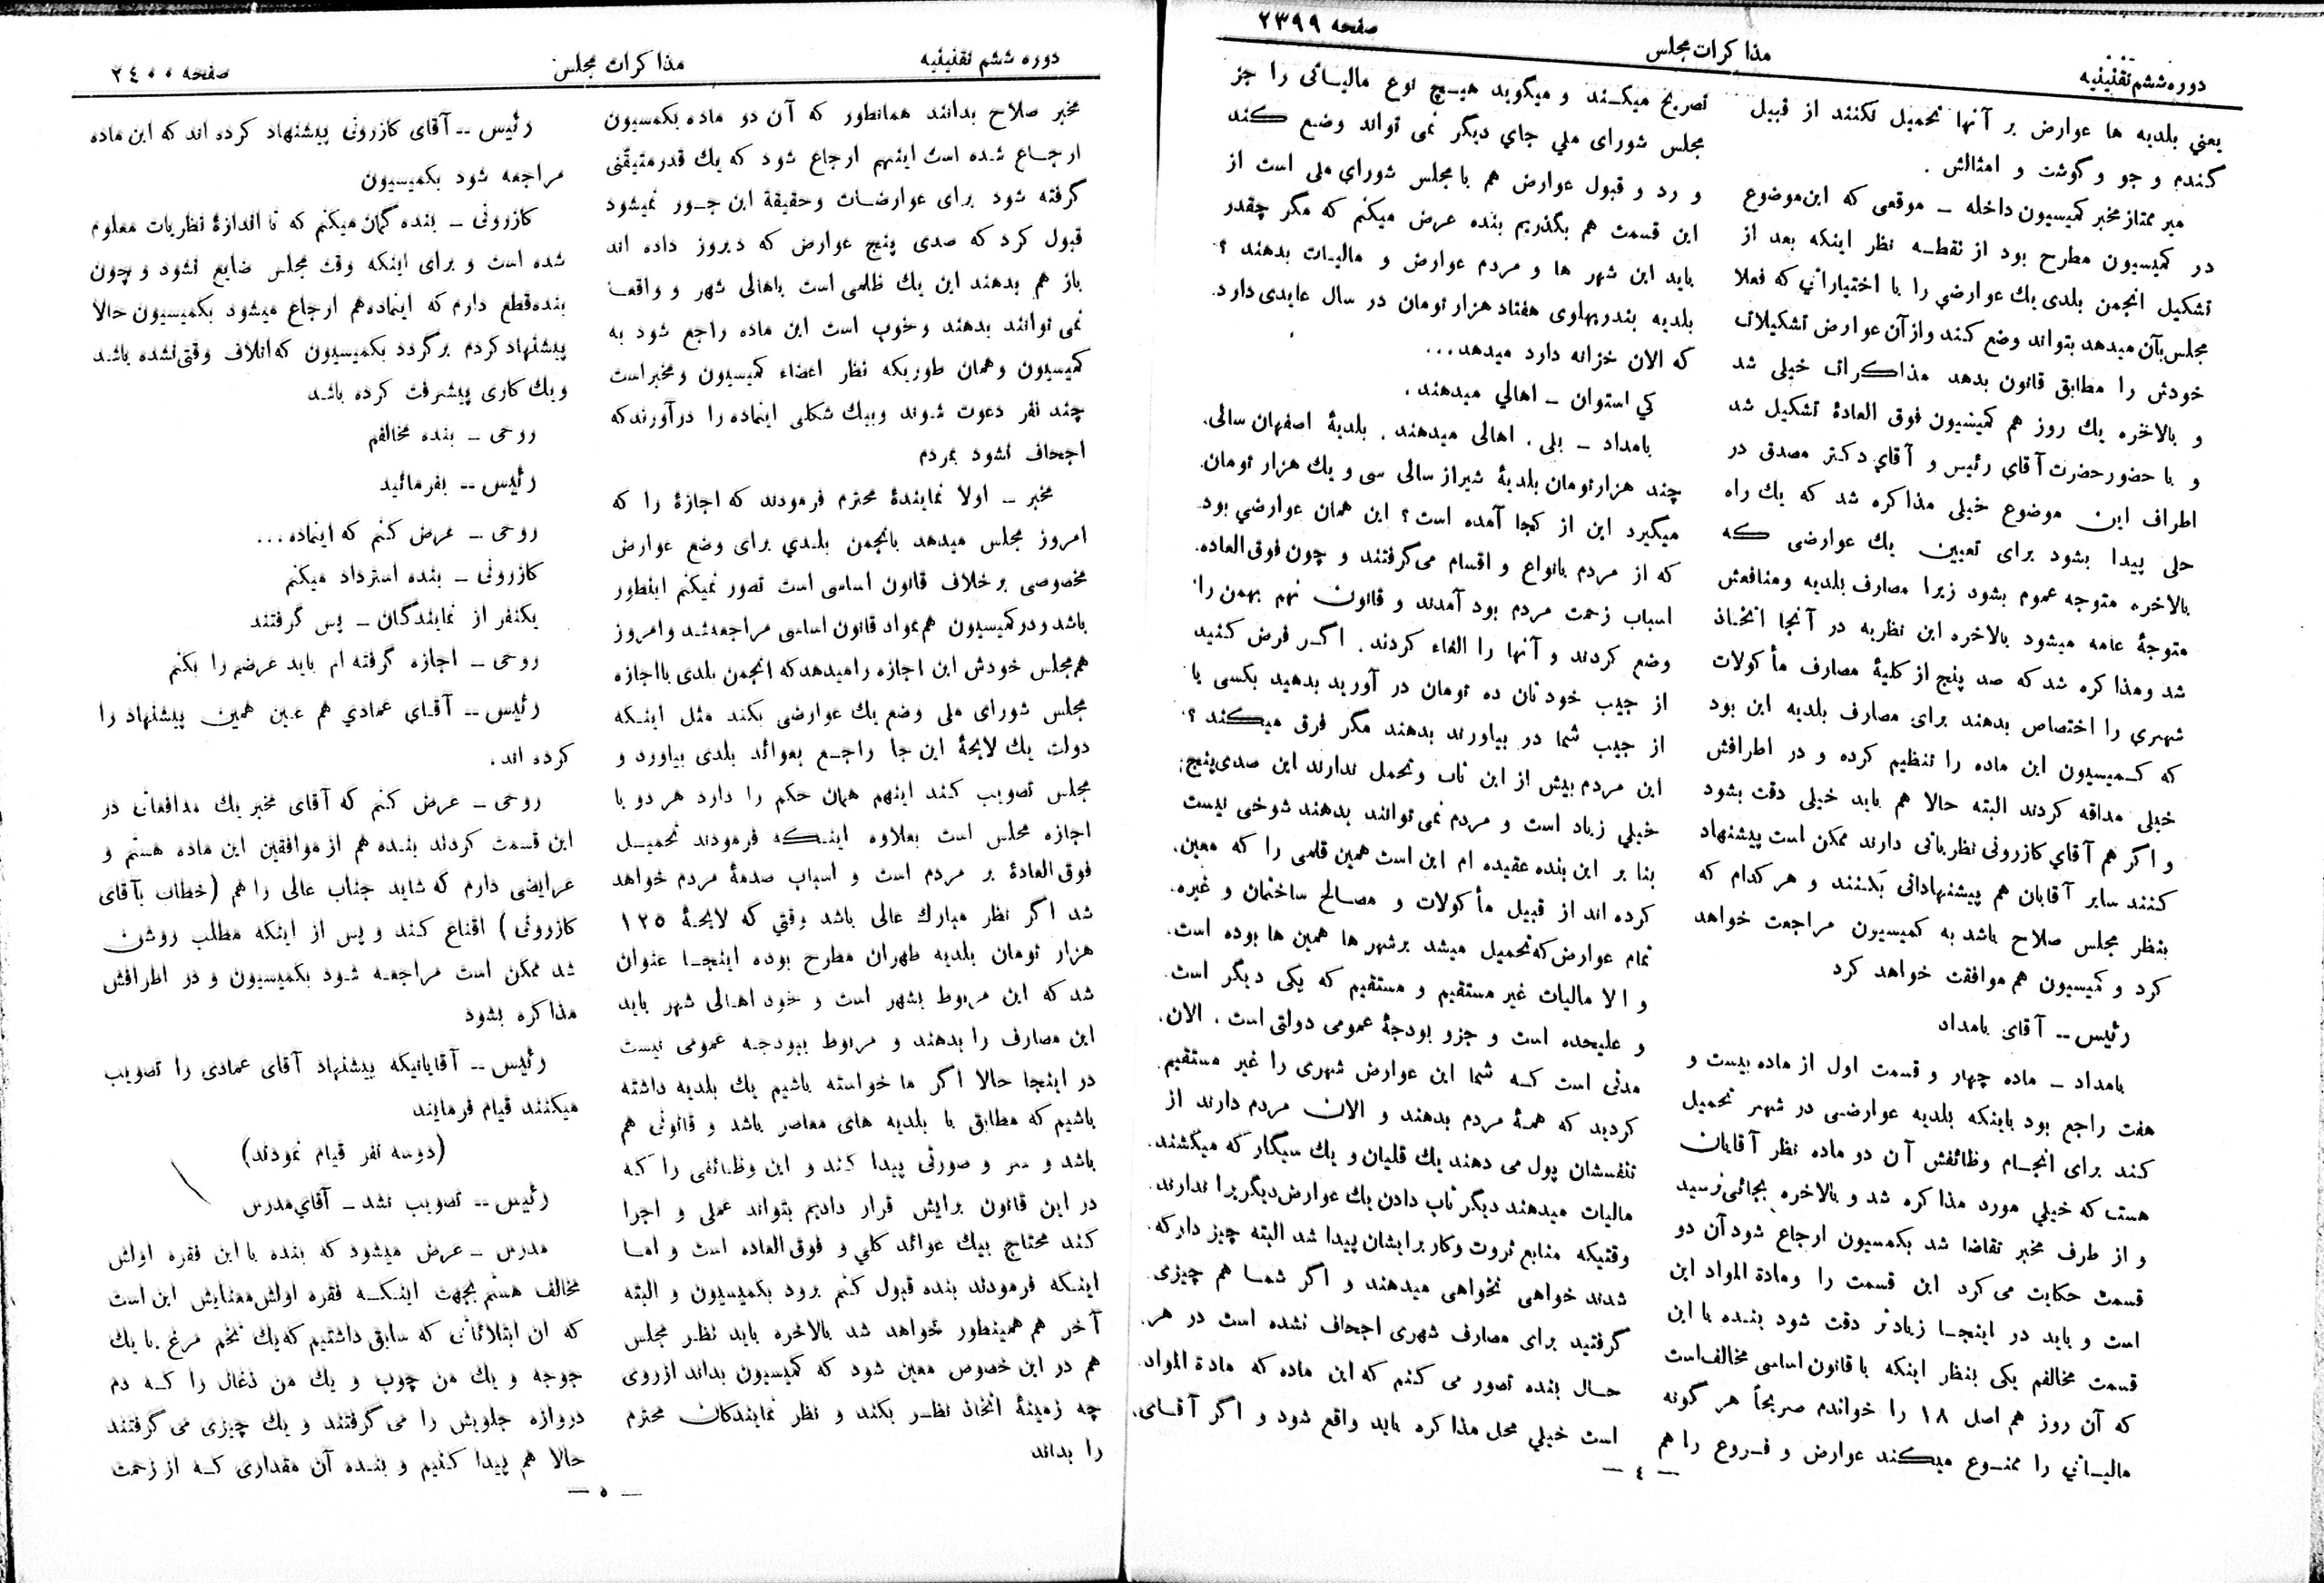 دوره ششم تقنینیه
مذاکرات مجلس
صفحه ۲۳۹۹
یعنی بلدیه ها عوارض بر آنها تحمیل نکنند از قبیل
گندم و جو و گوشت و امثالش .
میر ممتاز مخبر کمیسیون داخله ـ موقعی که این موضوع
در کمیسیون مطرح بود از نقطه نظر اینکه بعد از
تشکیل انجمن بلدی یك عوارضی را با اختیاراتی که فعلا
مجلس بآن میدهد بتواند وضع کند و از آن عوارض تشکیلات
خودش را مطابق قانون بدهد مذاکرات خیلی شد
و بالاخره یك روز هم کمیسیون فوق العادهٔ تشکیل شد
و با حضور حضرت آقای رئیس و آقای دکتر مصدق در
اطراف این موضوع خیلی مذاکره شد که یك راه
حلی پیدا بشود برای تعیین یك عوارضی که
بالاخره متوجه عموم بشود زیرا مصارف بلدیه و منافعش
متوجهٔ عامه میشود بالاخره این نظریه در آنجا اتخاذ
شد و مذاکره شد که صد پنج از کلیهٔ مصارف مأکولات
شهری را اختصاص بدهند برای مصارف بلدیه این بود
که کمیسیون این ماده را تنظیم کرده و در اطرافش
خیلی مداقه کردند البته حالا هم باید خیلی دقت بشود
و اگر هم آقای کازرونی نظریاتی دارند ممکن است پیشنهاد
کنند سایر آقایان هم پیشنهاداتی بکنند و هر کدام که
بنظر مجلس صلاح باشد به کمیسیون مراجعت خواهد
کرد و کمیسیون هم موافقت خواهد کرد
رئیس ـ آقای بامداد
بامداد ـ ماده چهار و قسمت اول از ماده بیست و
هفت راجع بود باینکه بلدیه عوارضی در شهر تحمیل
کند برای انجام وظائفش آن دو ماده نظر آقایان
هست که خیلی مورد مذاکره شد و بالاخره بجائی نرسید
و از طرف مخبر تقاضا شد بکمسیون ارجاع شود آن دو
قسمت حکایت می کرد این قسمت را و مادة المواد این
است و باید در اینجا زیاد تر دقت شود بنده با این
قسمت مخالفم یکی بنظر اینکه با قانون اساسی مخالف است
که آن روز هم اصل ۱۸ را خواندم صریحاً هر گونه
مالیاتی را ممنوع میکند عوارض و فروع را هم
تصریح میکند و میگوید هیچ نوع مالیاتی را جز
مجلس شورای ملی جای دیگر نمی تواند وضع کند
و رد و قبول عوارض هم با مجلس شورای ملی است از
این قسمت هم بگذریم بنده عرض میکنم که مگر چقدر
باید این شهر ها و مردم عوارض و مالیات بدهند ؟
بلدیه بندر پهلوی هفتاد هزار تومان در سال عایدی دارد
که الان خزانه دارد میدهد...
کی استوان ـ اهالی میدهند .
بامداد ـ بلی . اهالی میدهند . بلدیهٔ اصفهان سالی
چند هزار تومان بلدیهٔ شیراز سالی سی و یك هزار تومان
میگیرد این از کجا آمده است ؟ این همان عوارضی بود
که از مردم بانواع و اقسام می گرفتند و چون فوق العاده
اسباب زحمت مردم بود آمدند و قانون نهم بهمن را
وضع کردند و آنها را الغاء کردند . اگر فرض کنید
از جیب خودتان ده تومان در آورید بدهید بکسی یا
از جیب شما در بیاورند بدهند مگر فرق میکند ؟
این مردم بیش از این تاب و تحمل ندارند این صدی پنج
خیلی زیاد است و مردم نمی توانند بدهند شوخی نیست
بنا بر این بنده عقیده ام این است همین قلمی را که معین
کرده اند از قبیل مأکولات و مصالح ساختمان و غیره
تمام عوارض که تحمیل میشد بر شهر ها همین ها بوده است
و الا مالیات غیر مستقیم و مستقیم که یکی دیگر است
و علیحده است و جزو بودجهٔ عمومی دولتی است . الان
مدتی است که شما این عوارض شهری را غیر مستقیم
کردید که همهٔ مردم بدهند و الان مردم دارند از
تنفسشان پول می دهند یك قلیان و یك سیگار که میکشند
مالیات میدهند دیگر تاب دادن یك عوارض دیگر برا ندارند
وقتیکه منابع ثروت و کار برایشان پیدا شد البته چیز دار که
شدند خواهی نخواهی میدهند و اگر شما هم چیزی
گرفتید برای مصارف شهری اجحاف نشده است در هر
حال بنده تصور می کنم که این ماده که مادة المواد
است خیلی محل مذاکره باید واقع شود و اگر آقای
ـ ٤ ـ
دوره ششم تقنینیه
مذاکرات مجلس
صفحه ۲٤۰۰
مخبر صلاح بدانند همانطور که آن دو ماده بکمسیون
ارجاع شده است اینهم ارجاع شود که یك قدر متیقنی
گرفته شود برای عوارضات و حقیقة این جور نمیشود
قبول کرد که صدی پنج عوارض که دیروز داده اند
باز هم بدهند این یك ظلمی است باهالی شهر و واقعاً
نمی توانند بدهند و خوب است این ماده راجع شود به
کمیسیون و همان طوریکه نظر اعضاء کمیسیون و مخبر است
چند نفر دعوت شوند و بیك شکلی اینماده را در آورند که
اجحاف نشود بمردم
مخبر ـ اولا نمایندهٔ محترم فرمودند که اجازهٔ را که
امروز مجلس میدهد بانجمن بلدی برای وضع عوارض
مخصوصی بر خلاف قانون اساسی است تصور نمیکنم اینطور
باشد و در کمیسیون هم بمواد قانون اساسی مراجعه شد و امروز
هم مجلس خودش این اجازه را میدهد که انجمن بلدی با اجازه
مجلس شورای ملی وضع یك عوارضی بکند مثل اینکه
دولت یك لایحهٔ این جا راجع بعوائد بلدی بیاورد و
مجلس تصویب کند اینهم همان حکم را دارد هر دو با
اجازه مجلس است بعلاوه اینکه فرمودند تحمیل
فوق العادهٔ بر مردم است و اسباب صدمهٔ مردم خواهد
شد اگر نظر مبارك عالی باشد وقتی که لایحهٔ ۱۲۵
هزار تومان بلدیه طهران مطرح بوده اینجا عنوان
شد که این مربوط بشهر است و خود اهالی شهر باید
این مصارف را بدهند و مربوط ببودجه عمومی نیست
در اینجا حالا اگر ما خواسته باشیم یك بلدیه داشته
باشیم که مطابق با بلدیه های معاصر باشد و قانونی هم
باشد و سر و صورتی پیدا کند و این وظائفی را که
در این قانون برایش قرار دادیم بتواند عملی و اجرا
کند محتاج بیك عوائد کلی و فوق العاده است و اما
اینکه فرمودند بنده قبول کنم برود بکمیسیون و البته
آخر هم همینطور خواهد شد بالاخره باید نظر مجلس
هم در این خصوص معین شود که کمیسیون بداند از روی
چه زمینهٔ اتخاذ نظر بکند و نظر نمایندگان محترم
را بداند
رئیس ـ آقای کازرونی پیشنهاد کرده اند که این ماده
مراجعه شود بکمیسیون
کازرونی ـ بنده گمان میکنم که تا اندازهٔ نظریات معلوم
شده است و برای اینکه وقت مجلس ضایع نشود و چون
بنده قطع دارم که اینماده هم ارجاع میشود بکمیسیون حالا
پیشنهاد کردم برگردد بکمیسیون که اتلاف وقتی نشده باشد
و یك کاری پیشرفت کرده باشد
روحی ـ بنده مخالفم
رئیس ـ بفرمائید
روحی ـ عرض کنم که اینماده...
کازرونی ـ بنده استرداد میکنم
یکنفر از نمایندگان ـ پس گرفتند
روحی ـ اجازه گرفته ام باید عرضم را بکنم
رئیس ـ آقای عمادی هم عین همین پیشنهاد را
کرده اند .
روحی ـ عرض کنم که آقای مخبر یك مدافعاتی در
این قسمت کردند بنده هم از موافقین این ماده هستم و
عرایضی دارم که شاید جناب عالی را هم (خطاب بآقای
کازرونی) اقناع کند و پس از اینکه مطلب روشن
شد ممکن است مراجعه شود بکمیسیون و در اطرافش
مذاکره بشود
رئیس ـ آقایانیکه پیشنهاد آقای عمادی را تصویب
میکنند قیام فرمایند
(دوسه نفر قیام نمودند)
رئیس ـ تصویب نشد ـ آقای مدرس
مدرس ـ عرض میشود که بنده با این فقره اولش
مخالف هستم بجهت اینکه فقره اولش معنایش این است
که ان ابتلائاتی که سابق داشتیم که یك تخم مرغ با یك
جوجه و یك من چوب و یك من ذغال را که دم
دروازه جلویش را می گرفتند و یك چیزی می گرفتند
حالا هم پیدا کنیم و بنده آن مقداری که از زحمت
ـ ٥ ـ